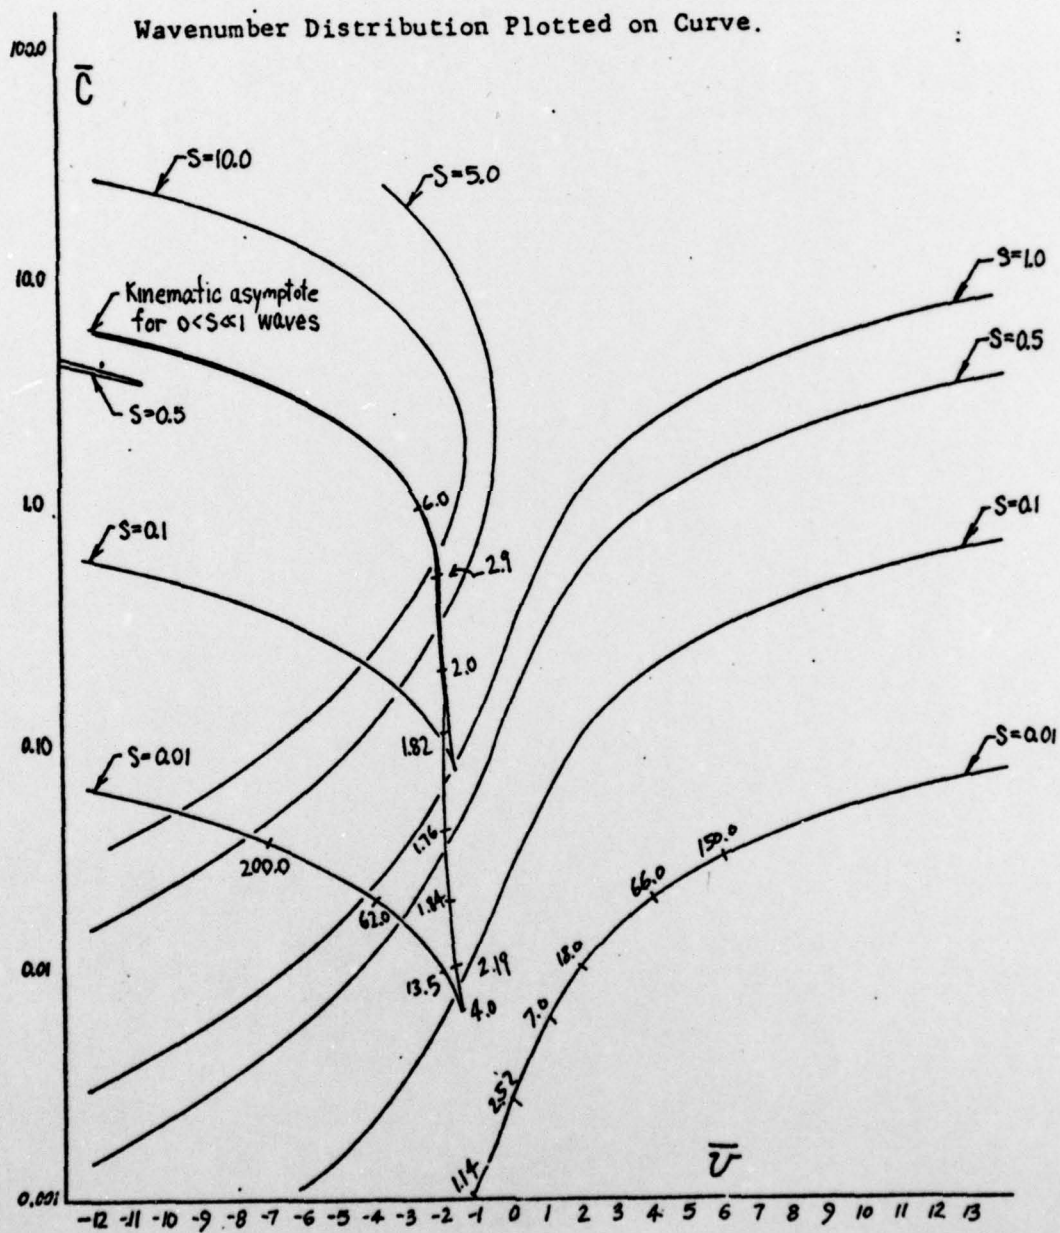 Wavenumber Distribution Plotted on Curve.
100.0
C̄
S=10.0
S=5.0
10.0
S=1.0
Kinematic asymptote
for 0<S≪1 waves
S=0.5
S=0.5
1.0
6.0
S=0.1
S=0.1
2.9
2.0
0.10
1.82
S=0.01
S=0.01
1.76
150.0
200.0
66.0
62.0
1.84
18.0
0.01
2.19
13.5
4.0
7.0
2.52
1.14
v̄
0.001
-12 -11 -10 -9 -8 -7 -6 -5 -4 -3 -2 -1 0 1 2 3 4 5 6 7 8 9 10 11 12 13